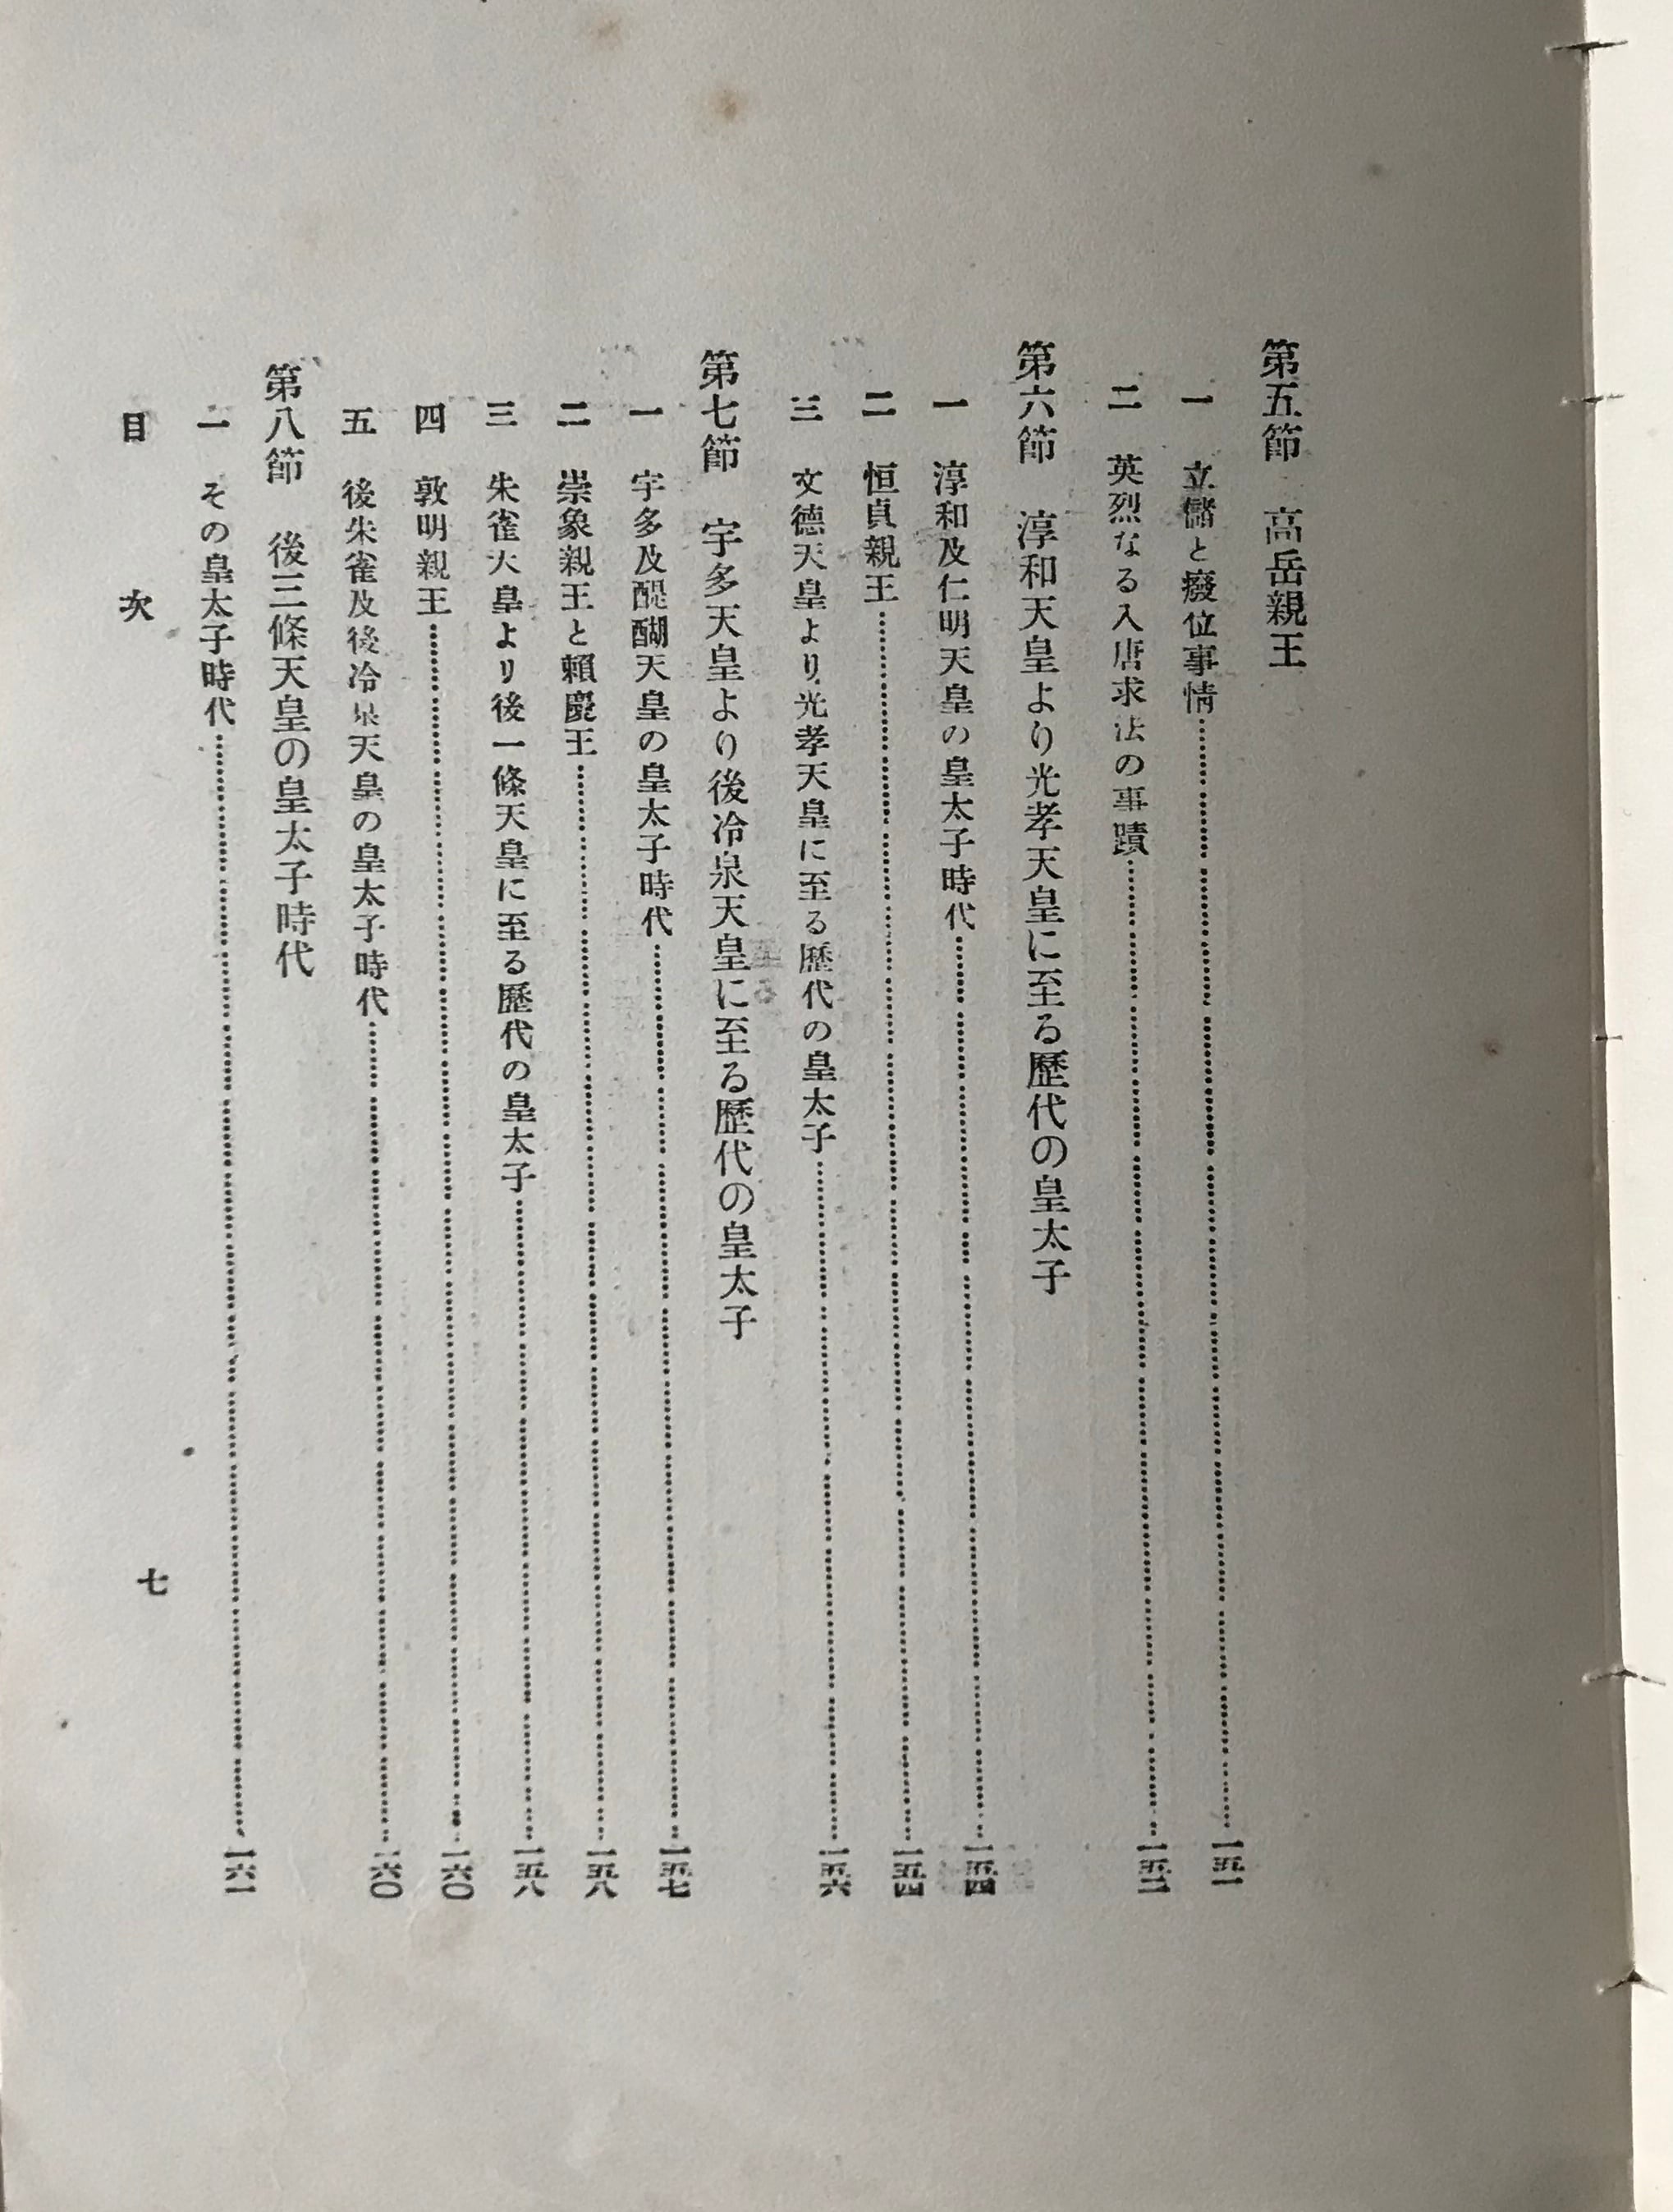 第五節　高岳親王
一　立儲と癈位事情……一五一
二　英烈なる入唐求法の事蹟……一五二
第六節　淳和天皇より光孝天皇に至る歴代の皇太子
一　淳和及仁明天皇の皇太子時代……一五四
二　恒貞親王……一五四
三　文德天皇より光孝天皇に至る歴代の皇太子……一五六
第七節　宇多天皇より後冷泉天皇に至る歴代の皇太子
一　宇多及醍醐天皇の皇太子時代……一五七
二　崇象親王と賴慶王……一五八
三　朱雀天皇より後一條天皇に至る歴代の皇太子……一五八
四　敦明親王……一六〇
五　後朱雀及後冷泉天皇の皇太子時代……一六〇
第八節　後三條天皇の皇太子時代
一　その皇太子時代……一六一
目次　七